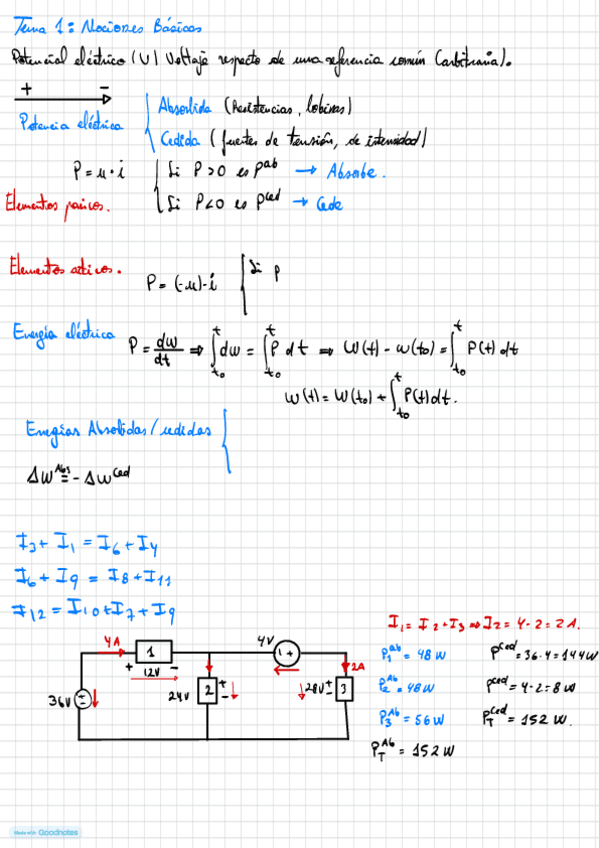 Tema 1: Nociones Básicas
Potencial eléctrico (U) Voltaje respecto de una referencia común (arbitraria).
+ −
Potencia eléctrica
Absorbida (Resistencias, bobinas)
Cedida (fuentes de tensión, de intensidad)
P = u · i
Si P>0 es P^ab → Absorbe.
Si P<0 es P^ced → Cede
Elementos pasivos.
Elementos activos.
P = (-u)·i
Si P
Energía eléctrica
P = dw/dt ⇒ ∫_{t₀}^{t} dw = ∫_{t₀}^{t} P dt ⇒ W(t) - W(t₀) = ∫_{t₀}^{t} P(t) dt
W(t) = W(t₀) + ∫_{t₀}^{t} P(t) dt.
Energías Absorbidas/cedidas
ΔW^Abs = - ΔW^Ced
I₃ + I₁ = I₆ + I₄
I₆ + I₉ = I₈ + I₁₁
I₁₂ = I₁₀ + I₇ + I₉
I₁ = I₂ + I₃ ⇒ I₂ = 4 - 2 = 2 A.
4A 1 4V - +
+ 12V −
36V + −
24V 2 + −
28V + − 3
2A
P₁^ab = 48 W P^ced = 36·4 = 144 W
P₂^Ab = 48 W P^ced = 4·2 = 8 W
P₃^Ab = 56 W P_T^ced = 152 W.
P_T^Ab = 152 W
Made with Goodnotes